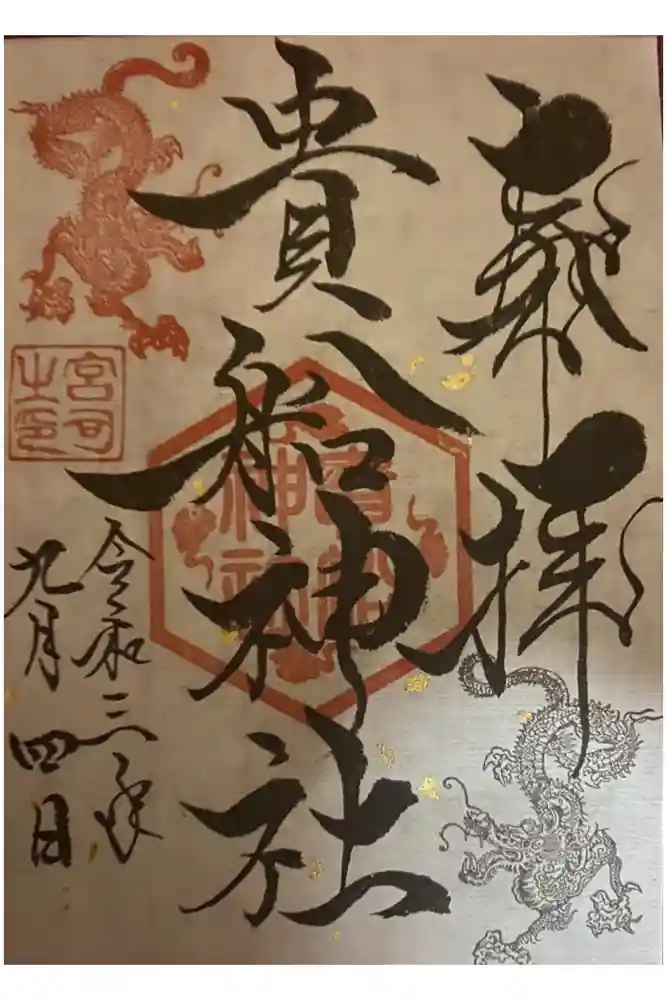 奉拝
貴船神社
貴船
神社
令和三年
九月四日
宮司
之印